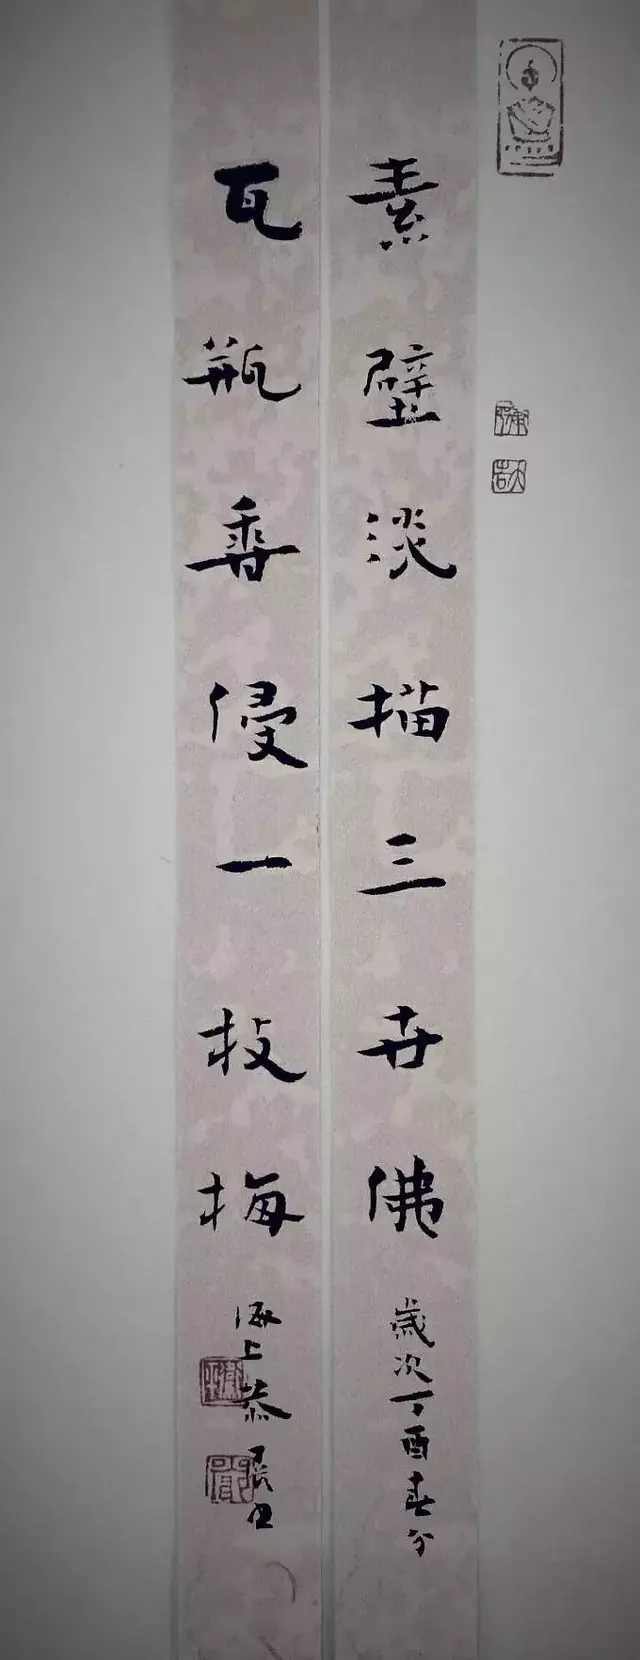 素壁淡描三世佛
歲次丁酉春分
瓦瓶香侵一枝梅
海上恭